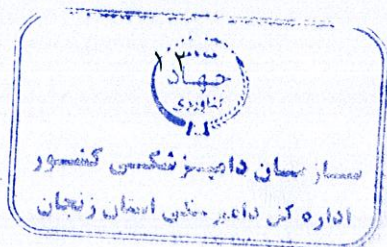 جهاد
کشاورزی
سازمان دامپزشکی کشور
اداره کل دامپزشکی استان زنجان